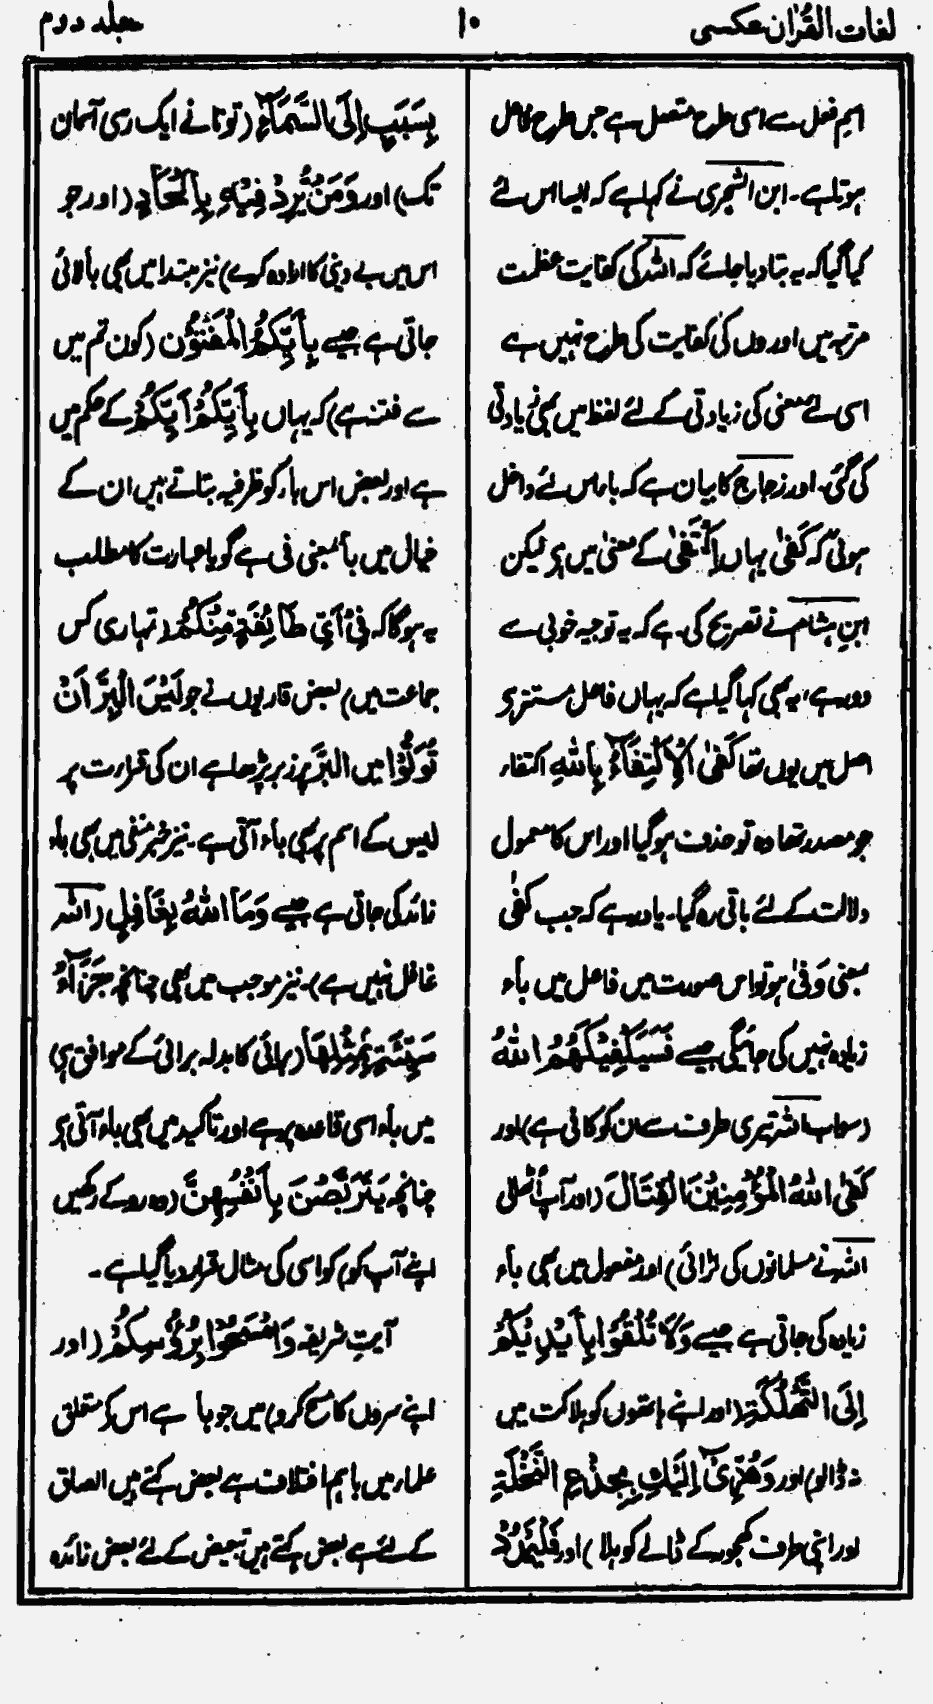 لغات القرآن عکسی
۱۰
جلد دوم
اسم فعل سے اسی طرح متصل ہے جس طرح فاعل
ہوتا ہے۔ ابن الشجری نے کہا ہے کہ ایسا اس لئے
کیا گیا کہ یہ بتا دیا جائے کہ اللہ کی کفایت عظمت
مرتبہ میں اوروں کی کفایت کی طرح نہیں ہے
اسی لئے معنی کی زیادتی کے لئے لفظ میں بھی زیادتی
کی گئی۔ اور زجاج کا بیان ہے کہ باء اس لئے داخل
ہوئی کہ کَفٰی یہاں اِکْتَفٰی کے معنیٰ میں ہے لیکن
ابنِ ہشام نے تصریح کی ہے کہ یہ توجیہ خوبی سے
دور ہے، یہ بھی کہا گیا ہے کہ یہاں فاعل مستتر ہے
اصل میں یوں تھا کَفٰی الْاِکْتِفَآءُ بِاللّٰہِ اکتفاء
جو مصدر تھا وہ تو حذف ہوگیا اور اس کا معمول
دلالت کے لئے باقی رہ گیا۔ یاد رہے کہ جب کفٰی
بمعنی وَقٰی ہو تو اس صورت میں فاعل میں باء
زیادہ نہیں کی جائیگی جیسے فَسَیَکْفِیْکَهُمُ اللّٰهُ
(سو اب اللہ تیری طرف سے ان کو کافی ہے) اور
کَفَی اللّٰهُ الْمُؤْمِنِیْنَ الْقِتَالَ (اور آپ اُٹھالی
اللہ نے مسلمانوں کی لڑائی) اور مفعول میں بھی باء
زیادہ کی جاتی ہے جیسے وَلَا تُلْقُوْا بِاَیْدِیْکُمْ
اِلَی التَّهْلُکَةِ (اور اپنے ہاتھوں کو ہلاکت میں
نہ ڈالو) اور وَهُزِّیْٓ اِلَیْكِ بِجِذْعِ النَّخْلَةِ
اور اپنی طرف کھجور کے ڈالے کو ہلا) اور فَلْیَمْدُدْ
بِسَبَبٍ اِلَی السَّمَآءِ (تو تانے ایک رسی آسمان
تک) اور وَمَنْ یُّرِدْ فِیْهِ بِاِلْحَادٍ (اور جو
اس میں بے دینی کا ارادہ کرے) نیز مبتدا میں بھی با لائی
جاتی ہے جیسے بِاَیِّکُمُ الْمَفْتُوْن (کون تم میں
سے فتنہ ہے) کہ یہاں بِاَیِّکُمْ اَیِّکُمْ کے حکم میں
ہے اور بعض اس باء کو ظرفیہ بتاتے ہیں ان کے
خیال میں با بمعنی فی ہے گویا عبارت کا مطلب
یہ ہوگا کہ فِیْ اَیِّ طَآئِفَةٍ مِّنْکُمْ (تمہاری کس
جماعت میں) بعض قاریوں نے جو لَیْسَ الْبِرَّ اَنْ
تُوَلُّوْا میں البِرَّ پر زبر پڑھا ہے ان کی قرارت پر
لیس کے اسم پر بھی باء آتی ہے۔ نیز خبر منفی میں بھی باء
زائد کی جاتی ہے جیسے وَمَا اللّٰهُ بِغَافِلٍ (اللہ
غافل نہیں ہے)۔ نیز موجب میں بھی چنانچہ جَزَآءُ
سَیِّئَةٍۭ بِمِثْلِهَا (برائی کا بدلہ برائی کے موافق ہے)
میں باء اسی قاعدہ پر ہے اور تاکید میں بھی باء آتی ہے
چنانچہ یَتَرَبَّصْنَ بِاَنْفُسِهِنَّ (وہ روکے رکھیں
اپنے آپ کو) کو اسی کی مثال قرار دیا گیا ہے۔
آیتِ شریفہ وَامْسَحُوْا بِرُءُوْسِکُمْ (اور
اپنے سروں کا مسح کرو) میں جو با ہے اس کے متعلق
علماء میں باہم اختلاف ہے بعض کہتے ہیں الصاق
کے لئے ہے بعض کہتے ہیں تبعیض کے لئے بعض زائدہ